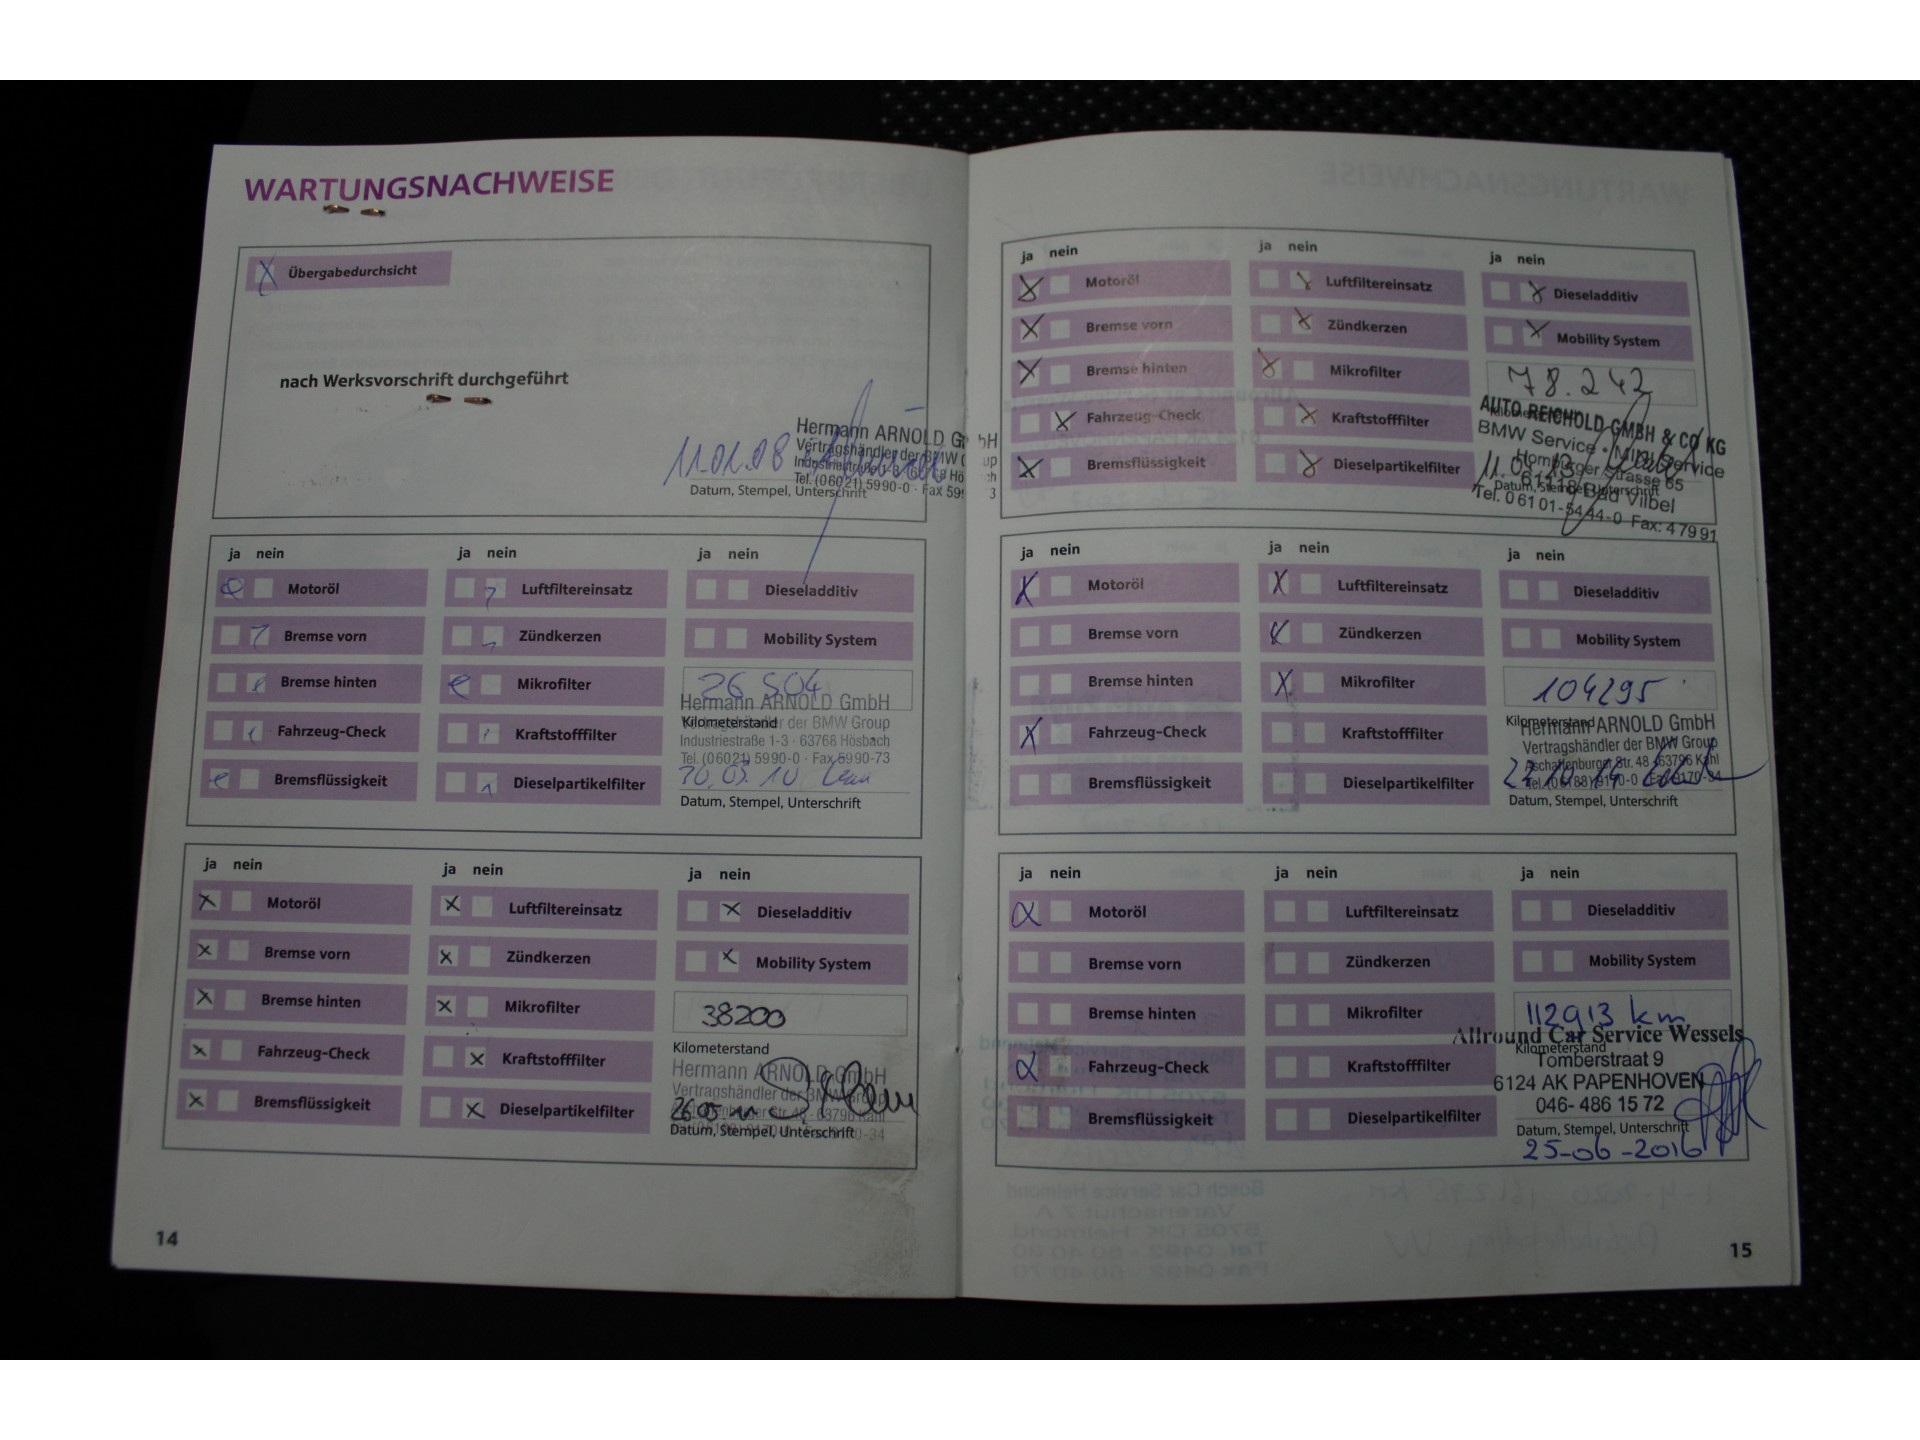 WARTUNGSNACHWEISE
Übergabedurchsicht
nach Werksvorschrift durchgeführt
Hermann ARNOLD GmbH
Vertragshändler der BMW Group
Industriestraße 1-3 63768 Hösbach
Tel. (06021) 5990-0 · Fax 599 3
11.01.08
Datum, Stempel, Unterschrift
ja nein ja nein ja nein
Motoröl Luftfiltereinsatz Dieseladditiv
Bremse vorn Zündkerzen Mobility System
Bremse hinten Mikrofilter 26 504
Hermann ARNOLD GmbH
Fahrzeug-Check Kraftstofffilter Kilometerstand der BMW Group
Industriestraße 1-3 · 63768 Hösbach
Tel. (06021) 5990-0 · Fax 5990-73
Bremsflüssigkeit Dieselpartikelfilter 03.10
Datum, Stempel, Unterschrift
ja nein ja nein ja nein
Motoröl Luftfiltereinsatz Dieseladditiv
Bremse vorn Zündkerzen Mobility System
Bremse hinten Mikrofilter 38200
Kilometerstand
Fahrzeug-Check Kraftstofffilter Hermann ARNOLD GmbH
Vertragshändler der BMW Group
Bremsflüssigkeit Dieselpartikelfilter
Datum, Stempel, Unterschrift
14
ja nein ja nein ja nein
Motoröl Luftfiltereinsatz Dieseladditiv
Bremse vorn Zündkerzen Mobility System
Bremse hinten Mikrofilter 78.242
Fahrzeug-Check Kraftstofffilter AUTO REICHOLD GMBH & CO KG
BMW Service · Mini Service
Homburger Strasse 65
Bremsflüssigkeit Dieselpartikelfilter 61118 Bad Vilbel
Datum, Stempel, Unterschrift
Tel. 0 61 01-54 44-0 Fax: 4 79 91
ja nein ja nein ja nein
Motoröl Luftfiltereinsatz Dieseladditiv
Bremse vorn Zündkerzen Mobility System
Bremse hinten Mikrofilter 104295
Kilometerstand
Hermann ARNOLD GmbH
Fahrzeug-Check Kraftstofffilter Vertragshändler der BMW Group
Aschaffenburger Str. 48 63796 Kahl
Bremsflüssigkeit Dieselpartikelfilter Tel. (06188) 9170-0 Fax 9170-34
Datum, Stempel, Unterschrift
ja nein ja nein ja nein
Motoröl Luftfiltereinsatz Dieseladditiv
Bremse vorn Zündkerzen Mobility System
Bremse hinten Mikrofilter 112913 km
Allround Car Service Wessels
Kilometerstand
Fahrzeug-Check Kraftstofffilter Tomberstraat 9
6124 AK PAPENHOVEN
Bremsflüssigkeit Dieselpartikelfilter 046- 486 15 72
Datum, Stempel, Unterschrift
25-06-2016
15